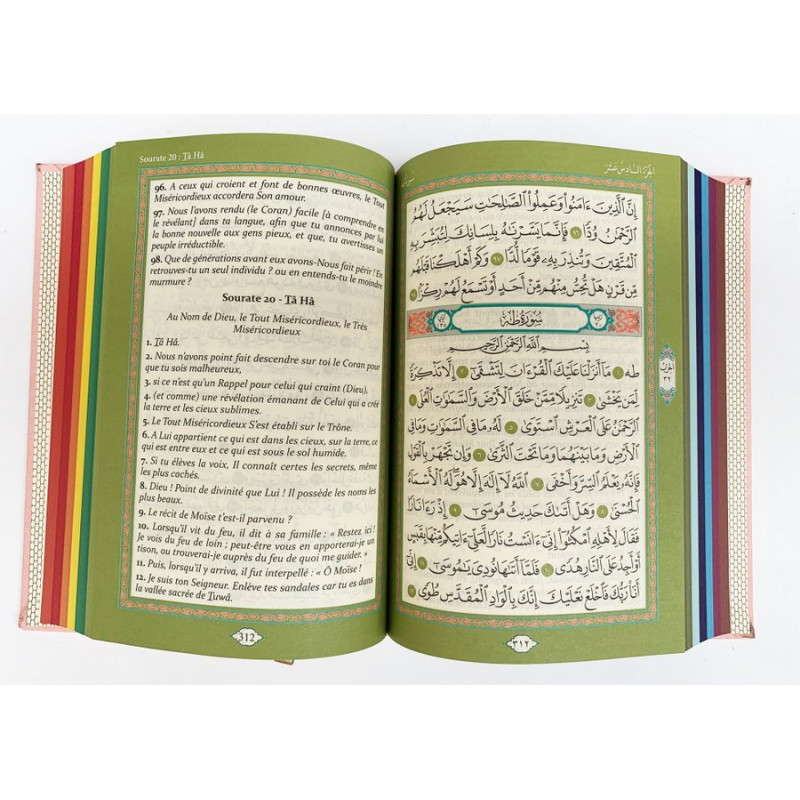 Sourate 20 : Ṭâ Hâ
96. A ceux qui croient et font de bonnes œuvres, le Tout
Miséricordieux accordera Son amour.
97. Nous l'avons rendu (le Coran) facile [à comprendre en
le révélant] dans ta langue, afin que tu annonces par lui
la bonne nouvelle aux gens pieux, et que, tu avertisses un
peuple irréductible.
98. Que de générations avant eux avons-Nous fait périr ! En
retrouves-tu un seul individu ? ou en entends-tu le moindre
murmure ?
Sourate 20 - Ṭâ Hâ
Au Nom de Dieu, le Tout Miséricordieux, le Très
Miséricordieux
1. Ṭâ Hâ.
2. Nous n'avons point fait descendre sur toi le Coran pour
que tu sois malheureux,
3. si ce n'est qu'un Rappel pour celui qui craint (Dieu),
4. (et comme) une révélation émanant de Celui qui a créé
la terre et les cieux sublimes.
5. Le Tout Miséricordieux S'est établi sur le Trône.
6. A Lui appartient ce qui est dans les cieux, sur la terre, ce
qui est entre eux et ce qui est sous le sol humide.
7. Si tu élèves la voix, Il connaît certes les secrets, même
les plus cachés.
8. Dieu ! Point de divinité que Lui ! Il possède les noms les
plus beaux.
9. Le récit de Moïse t'est-il parvenu ?
10. Lorsqu'il vit du feu, il dit à sa famille : « Restez ici !
Je vois du feu de loin ; peut-être vous en apporterai-je un
tison, ou trouverai-je auprès du feu de quoi me guider. »
11. Puis, lorsqu'il y arriva, il fut interpellé : « Ô Moïse !
12. Je suis ton Seigneur. Enlève tes sandales car tu es dans
la vallée sacrée de Ṭuwâ.
312
الجزء السادس عشر
إِنَّ ٱلَّذِينَ ءَامَنُوا۟ وَعَمِلُوا۟ ٱلصَّـٰلِحَـٰتِ سَيَجْعَلُ لَهُمُ
ٱلرَّحْمَـٰنُ وُدًّا ٩٦ فَإِنَّمَا يَسَّرْنَـٰهُ بِلِسَانِكَ لِتُبَشِّرَ بِهِ
ٱلْمُتَّقِينَ وَتُنذِرَ بِهِۦ قَوْمًا لُّدًّا ٩٧ وَكَمْ أَهْلَكْنَا قَبْلَهُم
مِّن قَرْنٍ هَلْ تُحِسُّ مِنْهُم مِّنْ أَحَدٍ أَوْ تَسْمَعُ لَهُمْ رِكْزًۢا ٩٨
سُورَةُ طه
بِسْمِ ٱللَّهِ ٱلرَّحْمَـٰنِ ٱلرَّحِيمِ
طه ١ مَآ أَنزَلْنَا عَلَيْكَ ٱلْقُرْءَانَ لِتَشْقَىٰٓ ٢ إِلَّا تَذْكِرَةً
لِّمَن يَخْشَىٰ ٣ تَنزِيلًا مِّمَّنْ خَلَقَ ٱلْأَرْضَ وَٱلسَّمَـٰوَٰتِ ٱلْعُلَى ٤
ٱلرَّحْمَـٰنُ عَلَى ٱلْعَرْشِ ٱسْتَوَىٰ ٥ لَهُۥ مَا فِى ٱلسَّمَـٰوَٰتِ وَمَا فِى
ٱلْأَرْضِ وَمَا بَيْنَهُمَا وَمَا تَحْتَ ٱلثَّرَىٰ ٦ وَإِن تَجْهَرْ بِٱلْقَوْلِ
فَإِنَّهُۥ يَعْلَمُ ٱلسِّرَّ وَأَخْفَى ٧ ٱللَّهُ لَآ إِلَـٰهَ إِلَّا هُوَ لَهُ ٱلْأَسْمَآءُ
ٱلْحُسْنَىٰ ٨ وَهَلْ أَتَىٰكَ حَدِيثُ مُوسَىٰٓ ٩ إِذْ رَءَا نَارًا
فَقَالَ لِأَهْلِهِ ٱمْكُثُوٓا۟ إِنِّىٓ ءَانَسْتُ نَارًا لَّعَلِّىٓ ءَاتِيكُم مِّنْهَا بِقَبَسٍ
أَوْ أَجِدُ عَلَى ٱلنَّارِ هُدًى ١٠ فَلَمَّآ أَتَىٰهَا نُودِىَ يَـٰمُوسَىٰٓ ١١ إِنِّىٓ
أَنَا۠ رَبُّكَ فَٱخْلَعْ نَعْلَيْكَ إِنَّكَ بِٱلْوَادِ ٱلْمُقَدَّسِ طُوًى ١٢
الحزب
٣٢
٣١٢